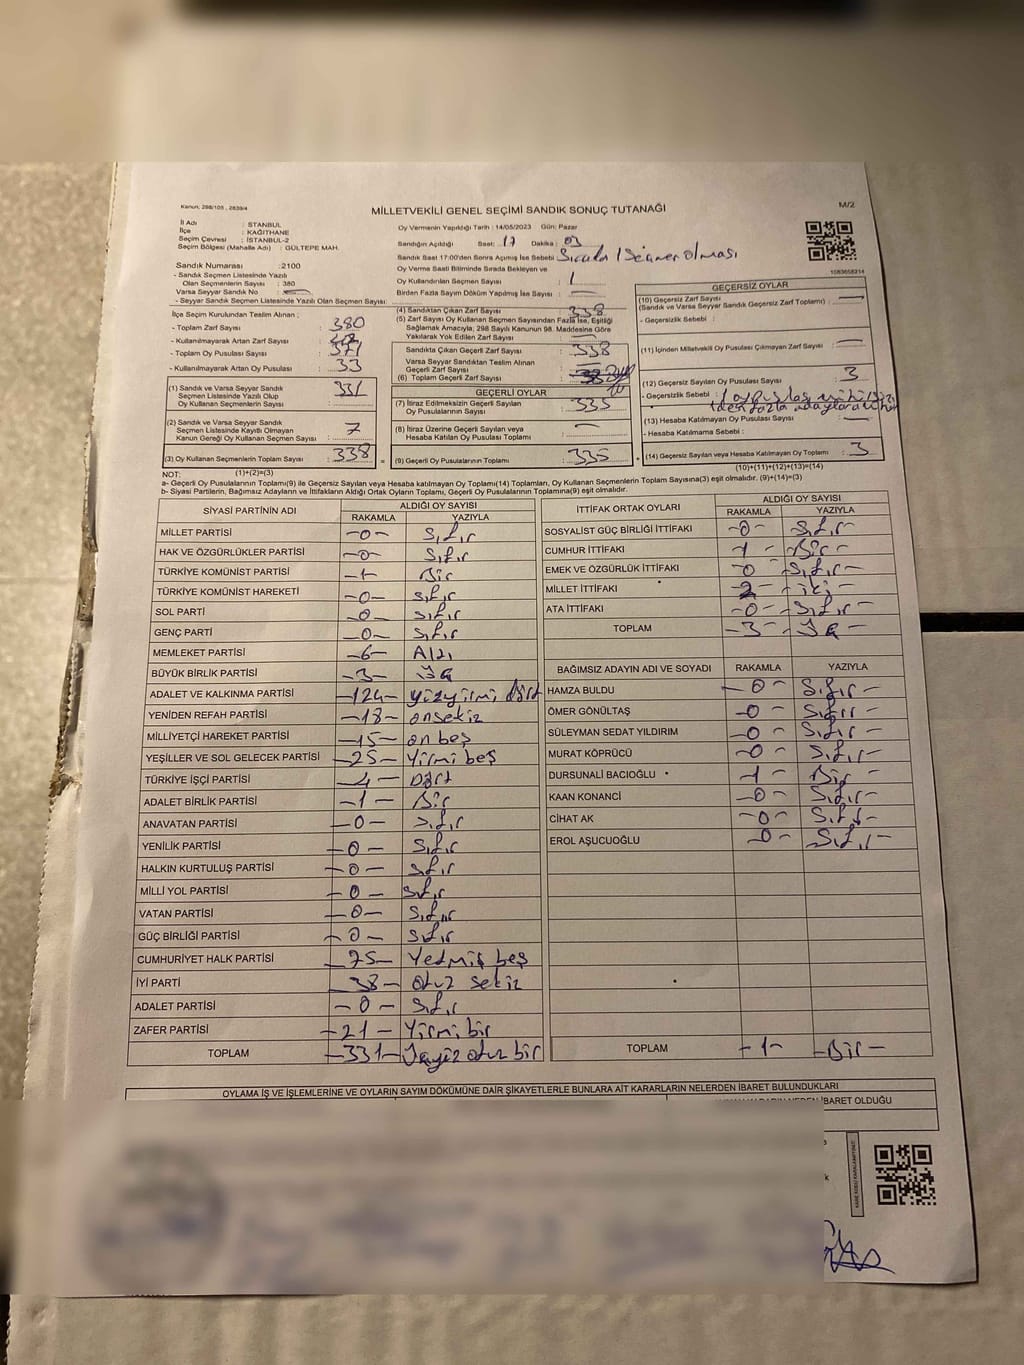 Kanun: 298/105 , 2839/4
MİLLETVEKİLİ GENEL SEÇİMİ SANDIK SONUÇ TUTANAĞI
M/2
İl Adı : İSTANBUL
İlçe : KAĞITHANE
Seçim Çevresi : İSTANBUL-2
Seçim Bölgesi (Mahalle Adı) : GÜLTEPE MAH.
Sandık Numarası :2100
- Sandık Seçmen Listesinde Yazılı
Olan Seçmenlerin Sayısı : 380
Varsa Seyyar Sandık No :
- Seyyar Sandık Listesinde Yazılı Olan Seçmen Sayısı:
İlçe Seçim Kurulundan Teslim Alınan ;
- Toplam Zarf Sayısı : 380
- Kullanılmayarak Artan Zarf Sayısı :
- Toplam Oy Pusulası Sayısı : 371
- Kullanılmayarak Artan Oy Pusulası : 33
(1) Sandık ve Varsa Seyyar Sandık
Seçmen Listesinde Yazılı Olup
Oy Kullanan Seçmenlerin Sayısı : 331
(2) Sandık ve Varsa Seyyar Sandık
Seçmen Listesinde Kayıtlı Olmayan
Kanun Gereği Oy Kullanan Seçmen Sayısı : 7
(3) Oy Kullanan Seçmenlerin Toplam Sayısı : 338
(1)+(2)=(3)
Oy Vermenin Yapıldığı Tarih : 14/05/2023 Gün: Pazar
Sandığın Açıldığı Saat: 17 Dakika : 03
Sandık Saat 17:00'den Sonra Açılmış İse Sebebi : Sırada 1 Seçmen olması
Oy Verme Saati Bitiminde Sırada Bekleyen ve
Oy Kullandırılan Seçmen Sayısı : 1
Birden Fazla Sayım Döküm Yapılmış İse Sayısı : —
(4) Sandıktan Çıkan Zarf Sayısı : 338
(5) Zarf Sayısı Oy Kullanan Seçmen Sayısından Fazla İse, Eşitliği
Sağlamak Amacıyla, 298 Sayılı Kanunun 98. Maddesine Göre
Yakılarak Yok Edilen Zarf Sayısı :
Sandıkta Çıkan Geçerli Zarf Sayısı : 338
Varsa Seyyar Sandıktan Teslim Alınan
Geçerli Zarf Sayısı :
(6) Toplam Geçerli Zarf Sayısı :
GEÇERLİ OYLAR
(7) İtiraz Edilmeksizin Geçerli Sayılan
Oy Pusulalarının Sayısı : 335
(8) İtiraz Üzerine Geçerli Sayılan veya
Hesaba Katılan Oy Pusulası Toplamı : —
(9) Geçerli Oy Pusulalarının Toplamı : 335
1083658214
GEÇERSİZ OYLAR
(10) Geçersiz Zarf Sayısı : —
(Sandık ve Varsa Seyyar Sandık Geçersiz Zarf Toplamı)
- Geçersizlik Sebebi :
(11) İçinden Milletvekili Oy Pusulası Çıkmayan Zarf Sayısı : —
(12) Geçersiz Sayılan Oy Pusulası Sayısı : 3
- Geçersizlik Sebebi :
(13) Hesaba Katılmayan Oy Pusulası Sayısı : —
- Hesaba Katılmama Sebebi :
(14) Geçersiz Sayılan veya Hesaba Katılmayan Oy Toplamı : 3
(10)+(11)+(12)+(13)=(14)
NOT:
a- Geçerli Oy Pusulaları(9) ile Geçersiz Sayılan veya Hesaba Katılmayan Oy Toplamı(14) Toplamları, Oy Kullanan Seçmenlerin Toplam Sayısına(3) eşit olmalıdır. (9)+(14)=(3)
b- Siyasi Partilerin, Bağımsız Adayların ve İttifakların Aldığı Ortak Oyların Toplamı, Geçerli Oy Pusulalarının Toplamına(9) eşit olmalıdır.
SİYASİ PARTİNİN ADI ALDIĞI OY SAYISI
RAKAMLA YAZIYLA
MİLLET PARTİSİ —0— Sıfır
HAK VE ÖZGÜRLÜKLER PARTİSİ —0— Sıfır
TÜRKİYE KOMÜNİST PARTİSİ —1— Bir
TÜRKİYE KOMÜNİST HAREKETİ —0— Sıfır
SOL PARTİ —0— Sıfır
GENÇ PARTİ —0— Sıfır
MEMLEKET PARTİSİ —6— Altı
BÜYÜK BİRLİK PARTİSİ —3— Üç
ADALET VE KALKINMA PARTİSİ —124— yüzyirmi dört
YENİDEN REFAH PARTİSİ —18— onsekiz
MİLLİYETÇİ HAREKET PARTİSİ —15— on beş
YEŞİLLER VE SOL GELECEK PARTİSİ —25— Yirmi beş
TÜRKİYE İŞÇİ PARTİSİ —4— Dört
ADALET BİRLİK PARTİSİ —1— Bir
ANAVATAN PARTİSİ —0— Sıfır
YENİLİK PARTİSİ —0— Sıfır
HALKIN KURTULUŞ PARTİSİ —0— Sıfır
MİLLİ YOL PARTİSİ —0— Sıfır
VATAN PARTİSİ —0— Sıfır
GÜÇ BİRLİĞİ PARTİSİ —0— Sıfır
CUMHURİYET HALK PARTİSİ —75— Yetmiş beş
İYİ PARTİ —38— otuz sekiz
ADALET PARTİSİ —0— Sıfır
ZAFER PARTİSİ —21— Yirmi bir
TOPLAM —331— Üçyüz otuz bir
İTTİFAK ORTAK OYLARI ALDIĞI OY SAYISI
RAKAMLA YAZIYLA
SOSYALİST GÜÇ BİRLİĞİ İTTİFAKI —0— Sıfır —
CUMHUR İTTİFAKI —1— Bir —
EMEK VE ÖZGÜRLÜK İTTİFAKI —0— Sıfır —
MİLLET İTTİFAKI —2— iki —
ATA İTTİFAKI —0— Sıfır —
TOPLAM —3— Üç —
BAĞIMSIZ ADAYIN ADI VE SOYADI RAKAMLA YAZIYLA
HAMZA BULDU —0— Sıfır —
ÖMER GÖNÜLTAŞ —0— Sıfır —
SÜLEYMAN SEDAT YILDIRIM —0— Sıfır —
MURAT KÖPRÜCÜ —0— Sıfır —
DURSUNALİ BACIOĞLU —1— Bir —
KAAN KONANCİ —0— Sıfır —
CİHAT AK —0— Sıfır —
EROL AŞUCUOĞLU —0— Sıfır —
TOPLAM —1— —Bir—
OYLAMA İŞ VE İŞLEMLERİNE VE OYLARIN SAYIM DÖKÜMÜNE DAİR ŞİKAYETLERLE BUNLARA AİT KARARLARIN NELERDEN İBARET BULUNDUKLARI
İBARET OLDUĞU